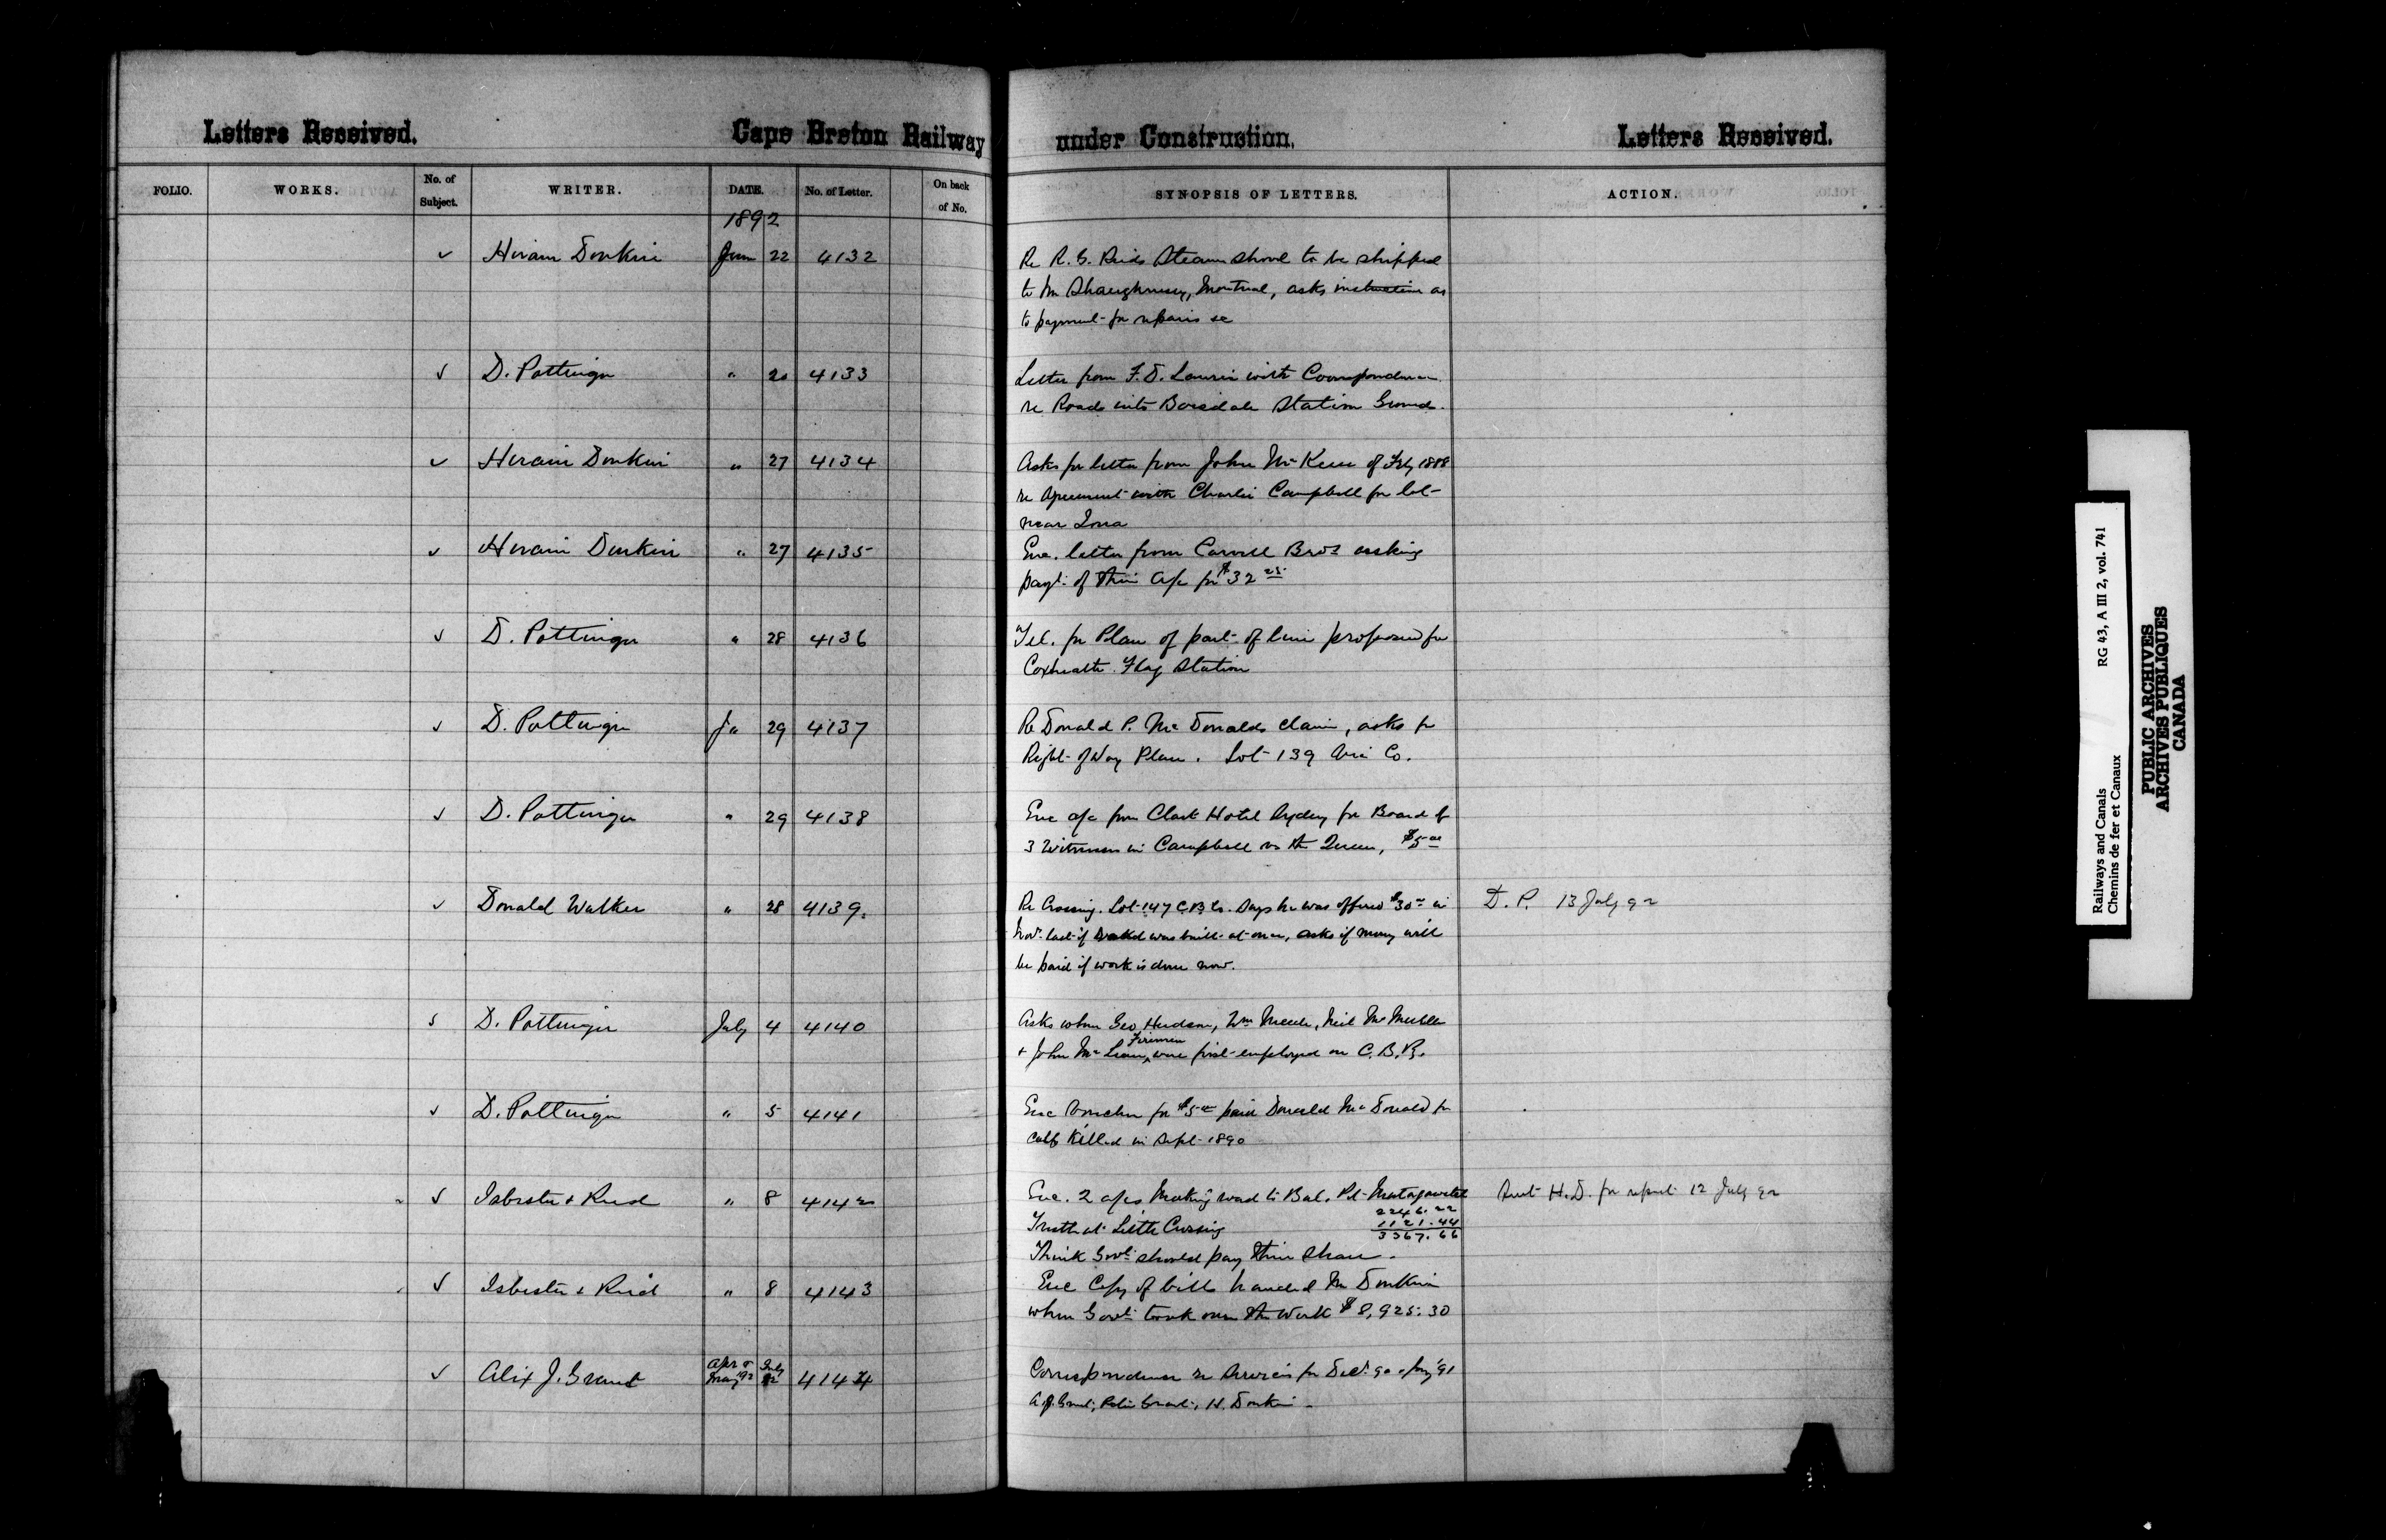 Letters Received.
Cape Breton Railway
under Construction.
Letters Received.
FOLIO.
WORKS.
No. of Subject.
WRITER.
DATE.
No. of Letter.
On back of No.
SYNOPSIS OF LETTERS.
ACTION.
1892
✓ Hiram Donkin June 22 4132
Re R. G. Reids Steam Shovel to be shipped
to Mr Shaughnessy, Montreal, asks instruction as
to payment for repairs &c
✓ D. Pottinger " 20 4133
Letter from F. D. Laurie with Correspondence
re Roads into Boisdale Station Ground.
✓ Hiram Donkin " 27 4134
Asks for letter from John McKeen of Feby 1888
re agreement with Charlie Campbell for lot
near Iona
✓ Hiram Donkin " 27 4135
Enc. letter from Carvell Bros asking
payt. of their a/c for $32 25
✓ D. Pottinger " 28 4136
Tel. for Plan of part of line proposed for
Coxheath Flag Station
✓ D. Pottinger Ju 29 4137
Re Donald P. McDonalds claim, asks for
Right of Way Plan. Lot 139 Co.
✓ D. Pottinger " 29 4138
Enc a/c from Clark Hotel Sydney for Board of
3 Witnesses in Campbell vs the Queen, $5 00
✓ Donald Walker " 28 4139.
Re Crossing. Lot 147 C.B. Co. Says he was offered $30 00 in
Novr last if was built at once, asks if money will
be paid if work is done now.
D. P. 13 July 92
D. Pottinger July 4 4140
Asks when Geo Hudson, Wm Meech, Neil McMullen
Firemen
+ John McLean, were first employed on C. B. R.
✓ D. Pottinger " 5 4141
Enc Voucher for $5 00 paid Donald McDonald for
calf killed in Sept 1890
✓ Isbester & Reid " 8 4142
Enc. 2 a/cs Making road to Bal. Pl.
2246.22
Trestle at Little Crossing 1121.44
3367.66
Think Govt should pay their share.
Sent H. D. for report 12 July 92
✓ Isbester & Reid " 8 4143
Enc Copy of bills handed Mr Donkin
when Govt took over the Work $8,925.30
✓ Alex J. Grant Apr & May 92 July 12 4144
Correspondence re Services for Decr 90 & Jany 91
A. J. Grant, H. Donkin
Railways and Canals RG 43, A III 2, vol. 741
Chemins de fer et Canaux
PUBLIC ARCHIVES
ARCHIVES PUBLIQUES
CANADA